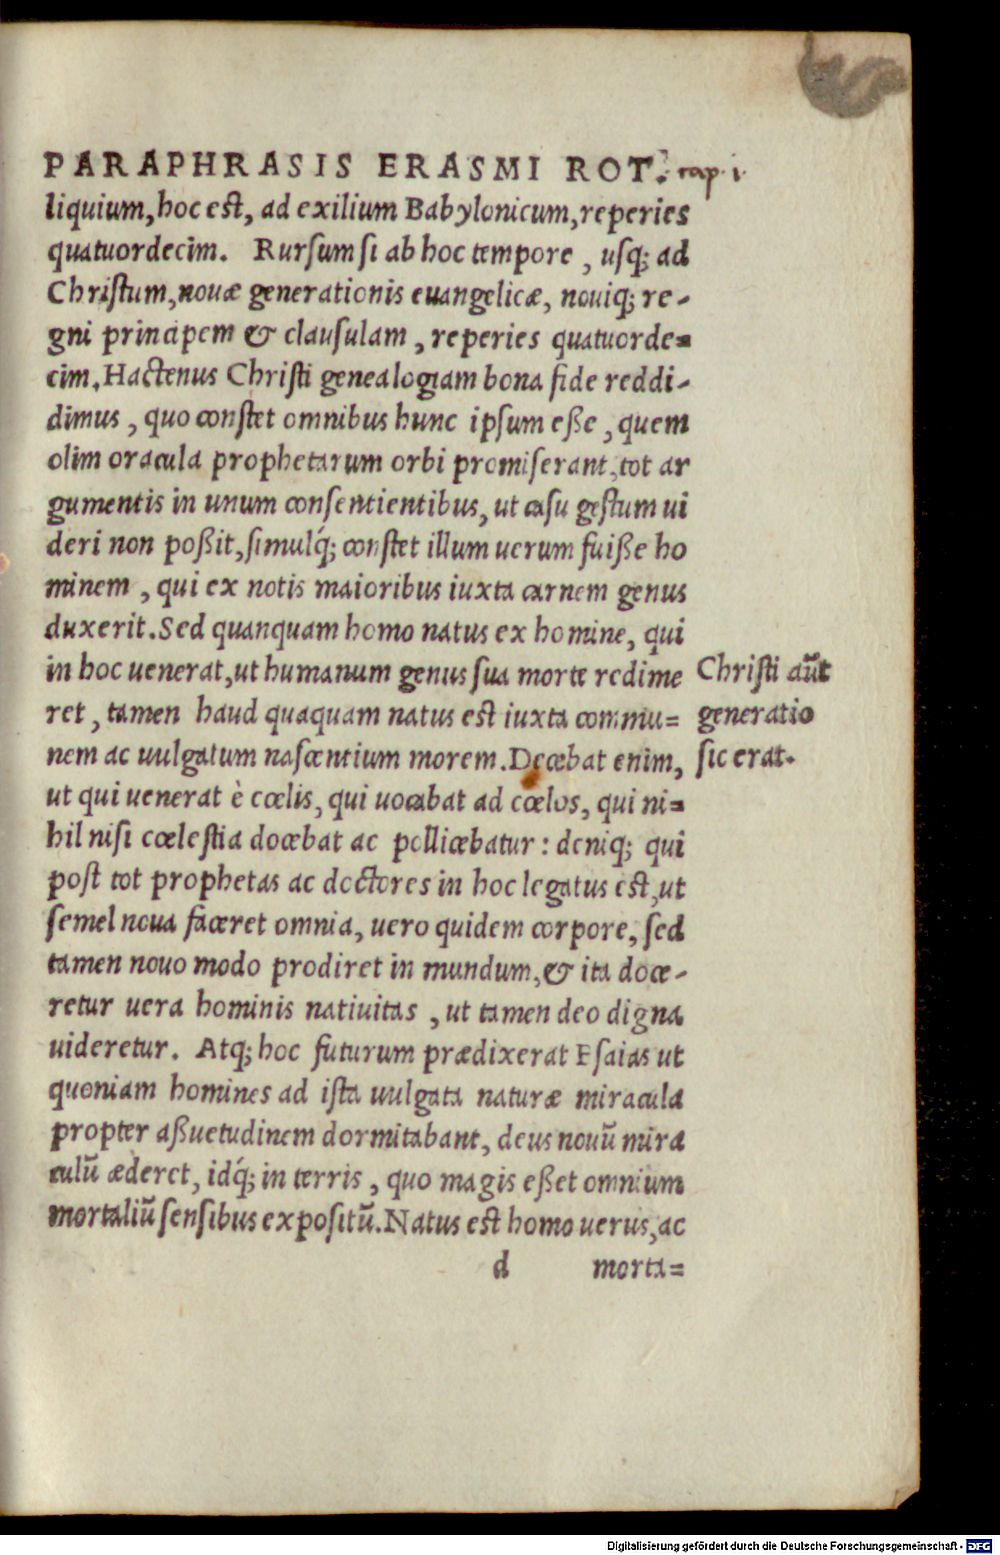 PARAPHRASIS ERASMI ROT. cap. 1.
liquium, hoc est, ad exilium Babylonicum, reperies
quatuordecim. Rursum si ab hoc tempore, usq; ad
Christum, nouæ generationis euangelicæ, nouiq; re-
gni principem & clausulam, reperies quatuorde=
cim. Hactenus Christi genealogiam bona fide reddi-
dimus, quo constet omnibus hunc ipsum eße, quem
olim oracula prophetarum orbi promiserant, tot ar
gumentis in unum consentientibus, ut casu gestum ui
deri non poßit, simulq́; constet illum uerum fuiße ho
minem, qui ex notis maioribus iuxta carnem genus
duxerit. Sed quanquam homo natus ex homine, qui
in hoc uenerat, ut humanum genus sua morte redime
ret, tamen haud quaquam natus est iuxta commu=
nem ac uulgatum nascentium morem. Decebat enim,
ut qui uenerat è cœlis, qui uocabat ad cœlos, qui ni=
hil nisi cœlestia docebat ac pollicebatur: deniq; qui
post tot prophetas ac doctores in hoc legatus est, ut
semel noua faceret omnia, uero quidem corpore, sed
tamen nouo modo prodiret in mundum, & ita doce-
retur uera hominis natiuitas, ut tamen deo digna
uideretur. Atq; hoc futurum prædixerat Esaias ut
quoniam homines ad ista uulgata naturæ miracula
propter aßuetudinem dormitabant, deus nouũ mira
culũ æderet, idq́; in terris, quo magis eßet omnium
mortaliũ sensibus expositũ. Natus est homo uerus, ac
d morta=
Christi aũt
generatio
sic erat.
Digitalisierung gefördert durch die Deutsche Forschungsgemeinschaft - DFG